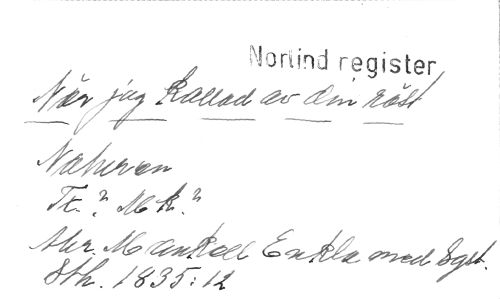 Norlind register
När jag kallad av din röst
Naturen
Tx. ? Mk. ?
Abr. Mankell Enkla med Sgst.
Sth. 1835:12